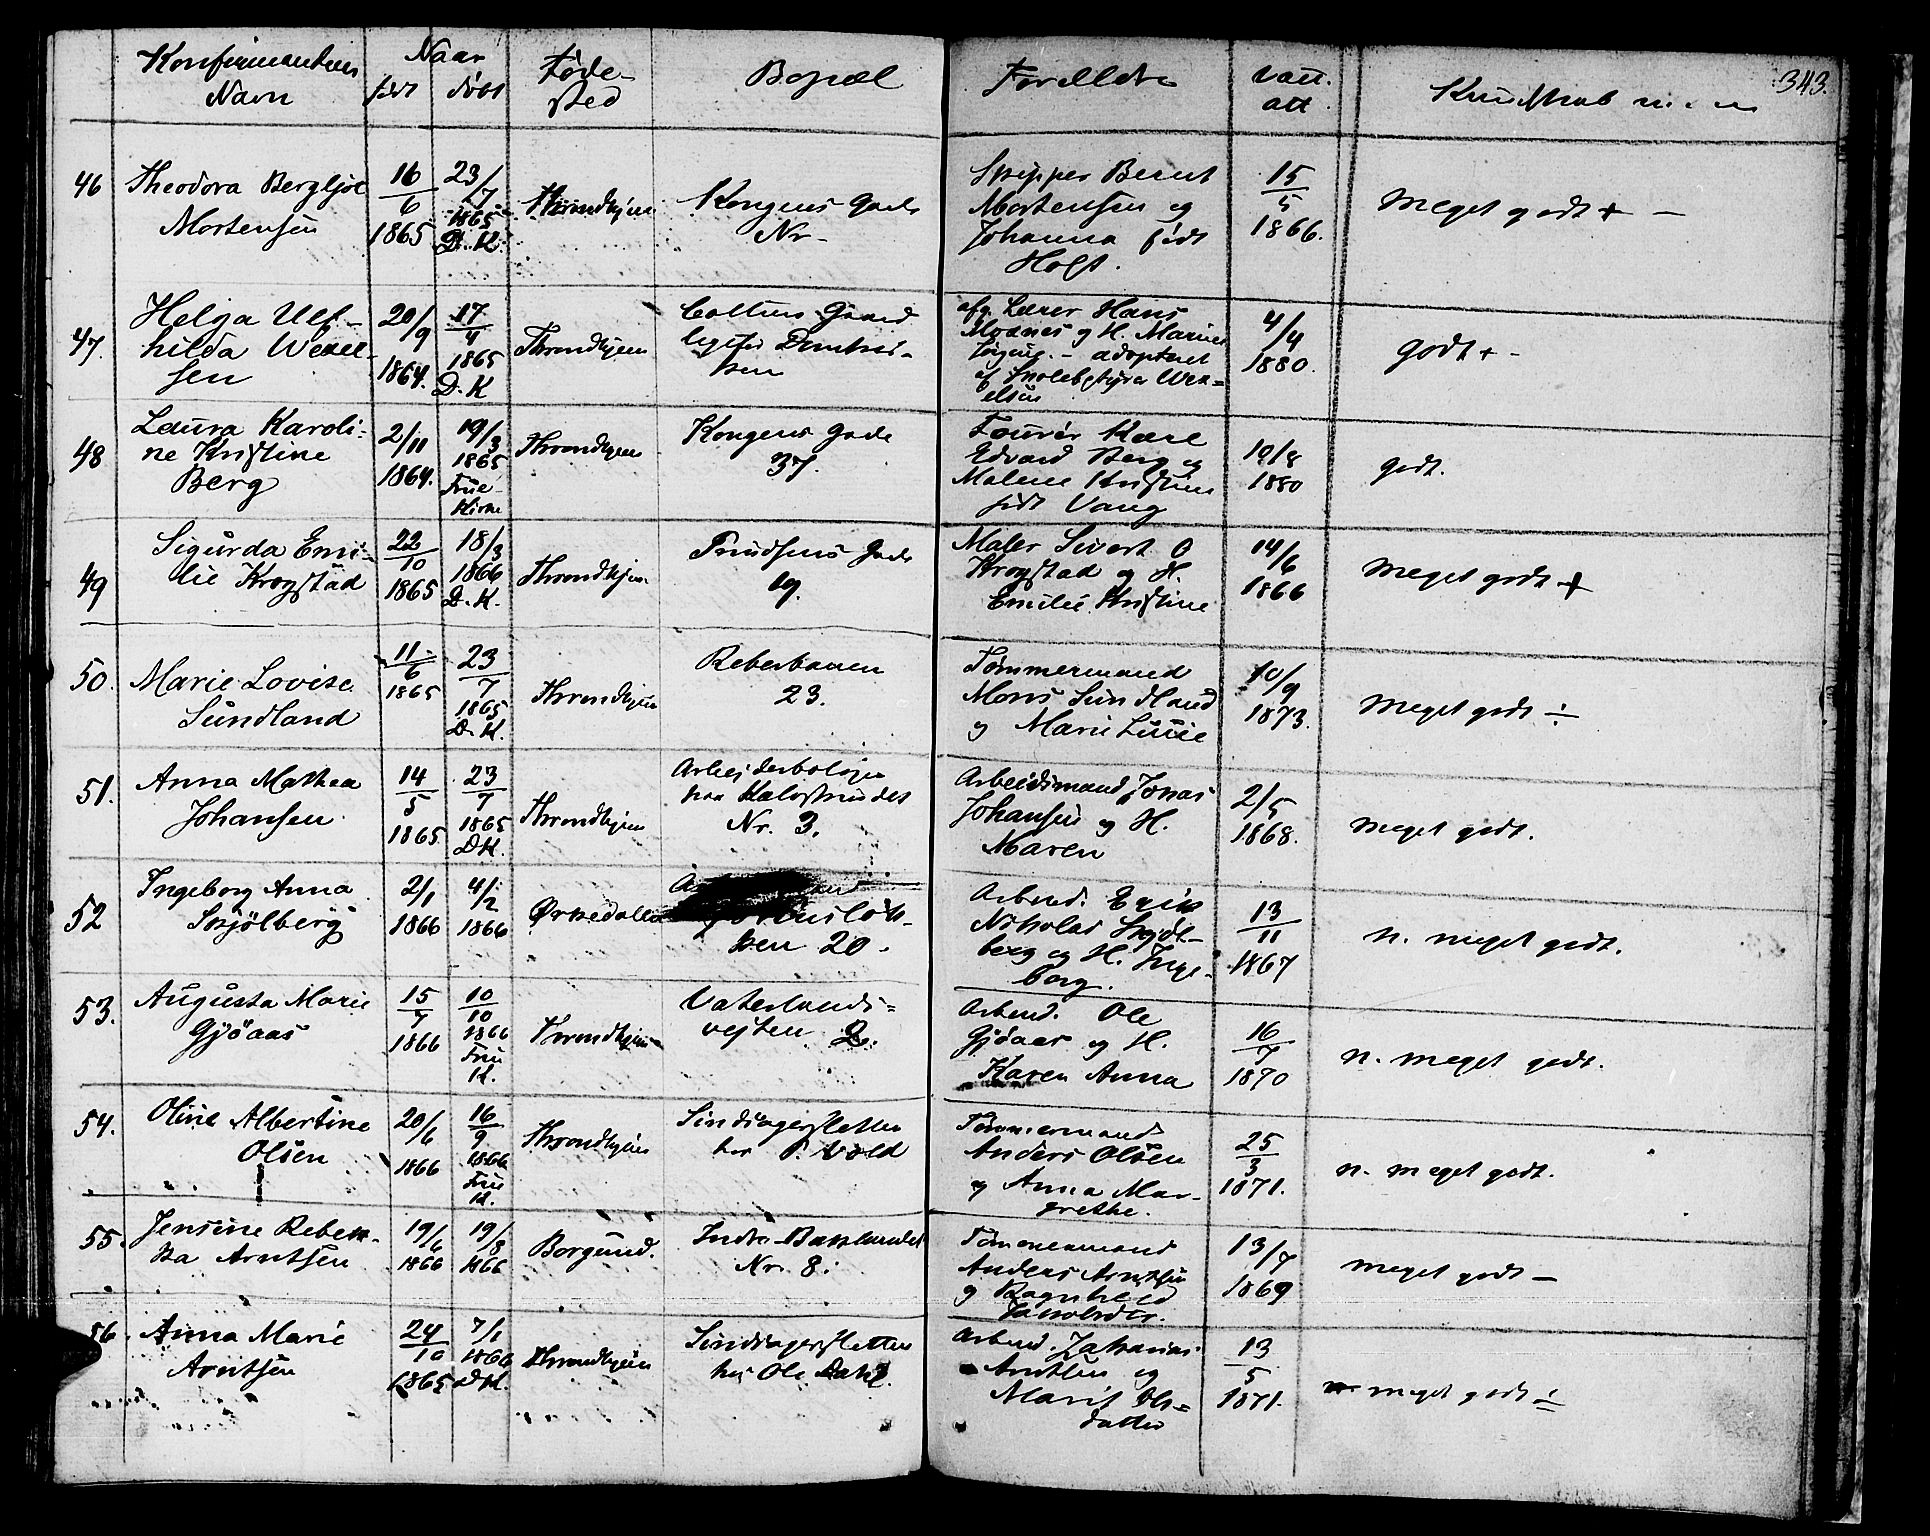 343.
Konfirmandens Navn
Naar
født
døbt
Føde-
sted
Bopæl
Forældre
Vacc.
att
Kundskab m. m
46
Theodora Bergljot
Mortensen
16/6
1865
23/7
1865
D. K.
Throndhjem
Kongens Gade
Nr -
Skipper Bernt
Mortensen og
Johanna født
Holst.
15/5
1866.
Meget godt + -
47.
Helga Ulf-
hilda Wexel-
sen
20/9
1864.
17/4
1865
D. K
Throndhjem
afg. Lærer Hans
Moxnes og H. Marie
- adopteret
af Skolebestyrer Wex=
elsen
4/4
1880.
godt + -
48
Laura Karoli-
ne Kristine
Berg
2/11
1864.
19/3
1865
Frue-
Kirke
Throndhjem
Kongens Gade
37.
Fourér Karl
Edvard Berg og
Malene Kristine
født Vang
10/8
1880
godt.
49
Sigurda Emi-
lie Krogstad
22/10
1865
18/3
1866
D. K.
Throndhjem
Gade
19.
Maler Sivert O
Krogstad og H.
Emilie Kristine
14/6
1866
Meget godt +
50.
Marie Lovise
Sundland
11/6
1865
23/7
1865
D. K.
Throndhjem
Reberbanen
23.
Tømmermand
Mons Sundland
og Marie Lucie
10/9
1873.
Meget godt ÷
51.
Anna Mathea
Johansen
14/5
1865
23/7
1865
DK.
Throndhjem
Arbejderboliger
Nr. 3.
Arbeidsmand Jonas
Johansen og H.
Maren
2/5
1868.
meget godt.
52
Ingeborg Anna
Skjölberg
2/1
1866
4/2
1866
Ørkedalen
ken 20.
Arbmd. Erik
Nikolai Skjöl-
berg og H. Inge-
borg.
13/11
1867
n. meget godt.
53.
Augusta Marie
Gjöaas
15/7
1866
10/10
1866
Frue
K.
Throndhjem
Vaterlands=
vejten 2.
Arbmd. Ole
Gjöaas og H.
Karen Anna
16/7
1870
n. meget godt.
54.
Oline Albertine
Olsen
20/6
1866
16/9
1866
Frue
K.
Throndhjem
Sindsagersletten
hos P. Wold
Tømmermand
Anders Olsen
og Anna Mar-
grethe.
25/3
1871.
n. meget godt.
55.
Jensine Rebek-
ka Arntsen
19/6
1866
19/8
1866
Borgund.
Indre-Bakklandet
Nr. 8.
Tømmermand
Anders Arntsen
og Ragnhild
Jakobsdtr.
13/7
1869
meget godt -
56.
Anna Marie
Arntsen
24/10
1865
7/1
1866
D.K.
Throndhjem
Sindsagersletten
hos Ole Dahl.
Arbmd. Zakarias
Arntsen og
Marit Ols=
datter
13/5
1871.
meget godt ÷